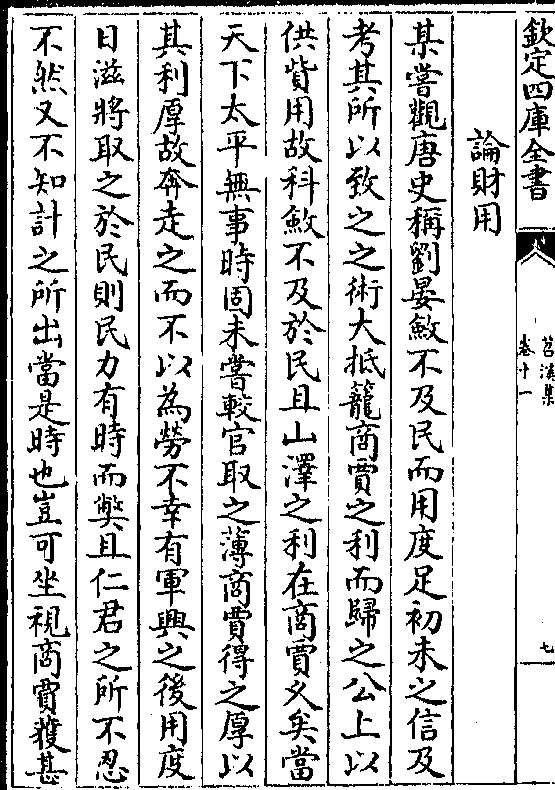 欽定四庫全書
苕溪集
卷十一
七
論財用
某嘗觀唐史稱劉晏斂不及民而用度足初未之信及
考其所以致之之術大抵籠商賈之利而歸之公上以
供貲用故科斂不及於民且山澤之利在商賈久矣當
天下太平無事時固未嘗較官取之薄商賈得之厚以
其利厚故奔走之而不以為勞不幸有軍興之後用度
日滋將取之於民則民力有時而弊且仁君之所不忍
不然又不知計之所出當是時也豈可坐視商賈獲甚